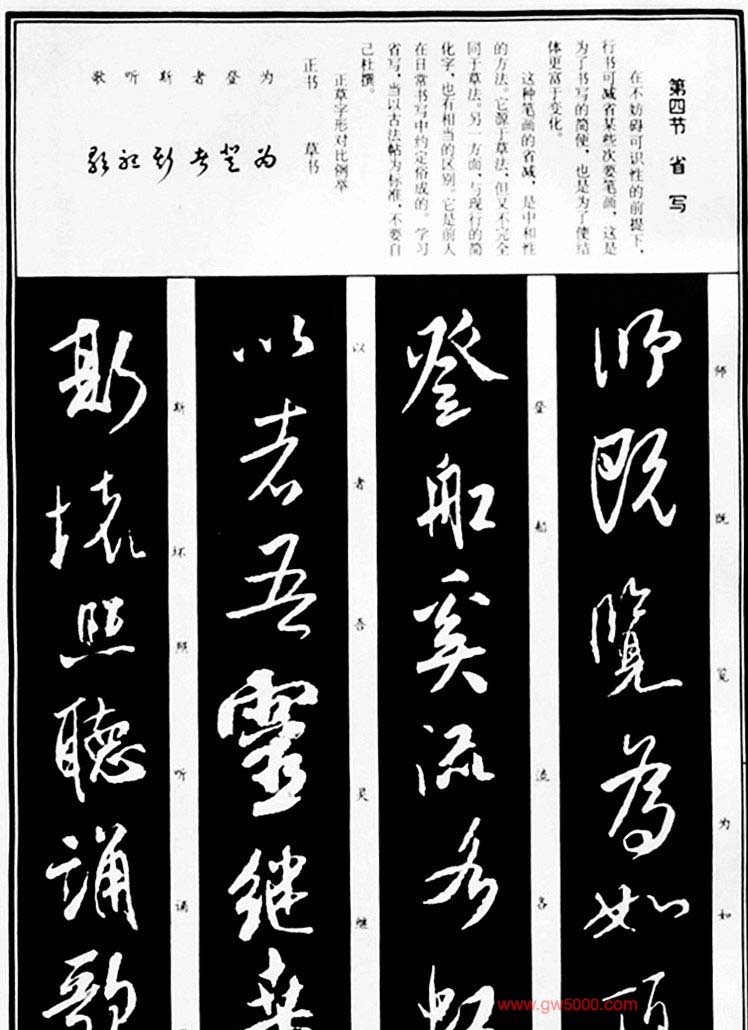 第四节 省 写
在不妨碍可识性的前提下，
行书可减省某些次要笔画，这是
为了书写的简便，也是为了使结
体更富于变化。
这种笔画的省减，是中和性
的方法。它源于草法，但又不完全
同于草法。另一方面，与现行的简
化字，也有相当的区别。它是前人
在日常书写中约定俗成的。学习
省写，当以古法帖为标准，不要自
己杜撰。
正草字形对比例举
正书 草书
为 为
登 登
者 者
斯 斯
听 听
歌 歌
师 既 览 为 如
師 既 覽 為 如
登 船 流 各
登 船 奚 流 各
以 者 吾 灵 继
以 者 吾 靈 继
斯 坏 照 听 诵
斯 壞 照 聽 誦 歌
www.gw5000.com